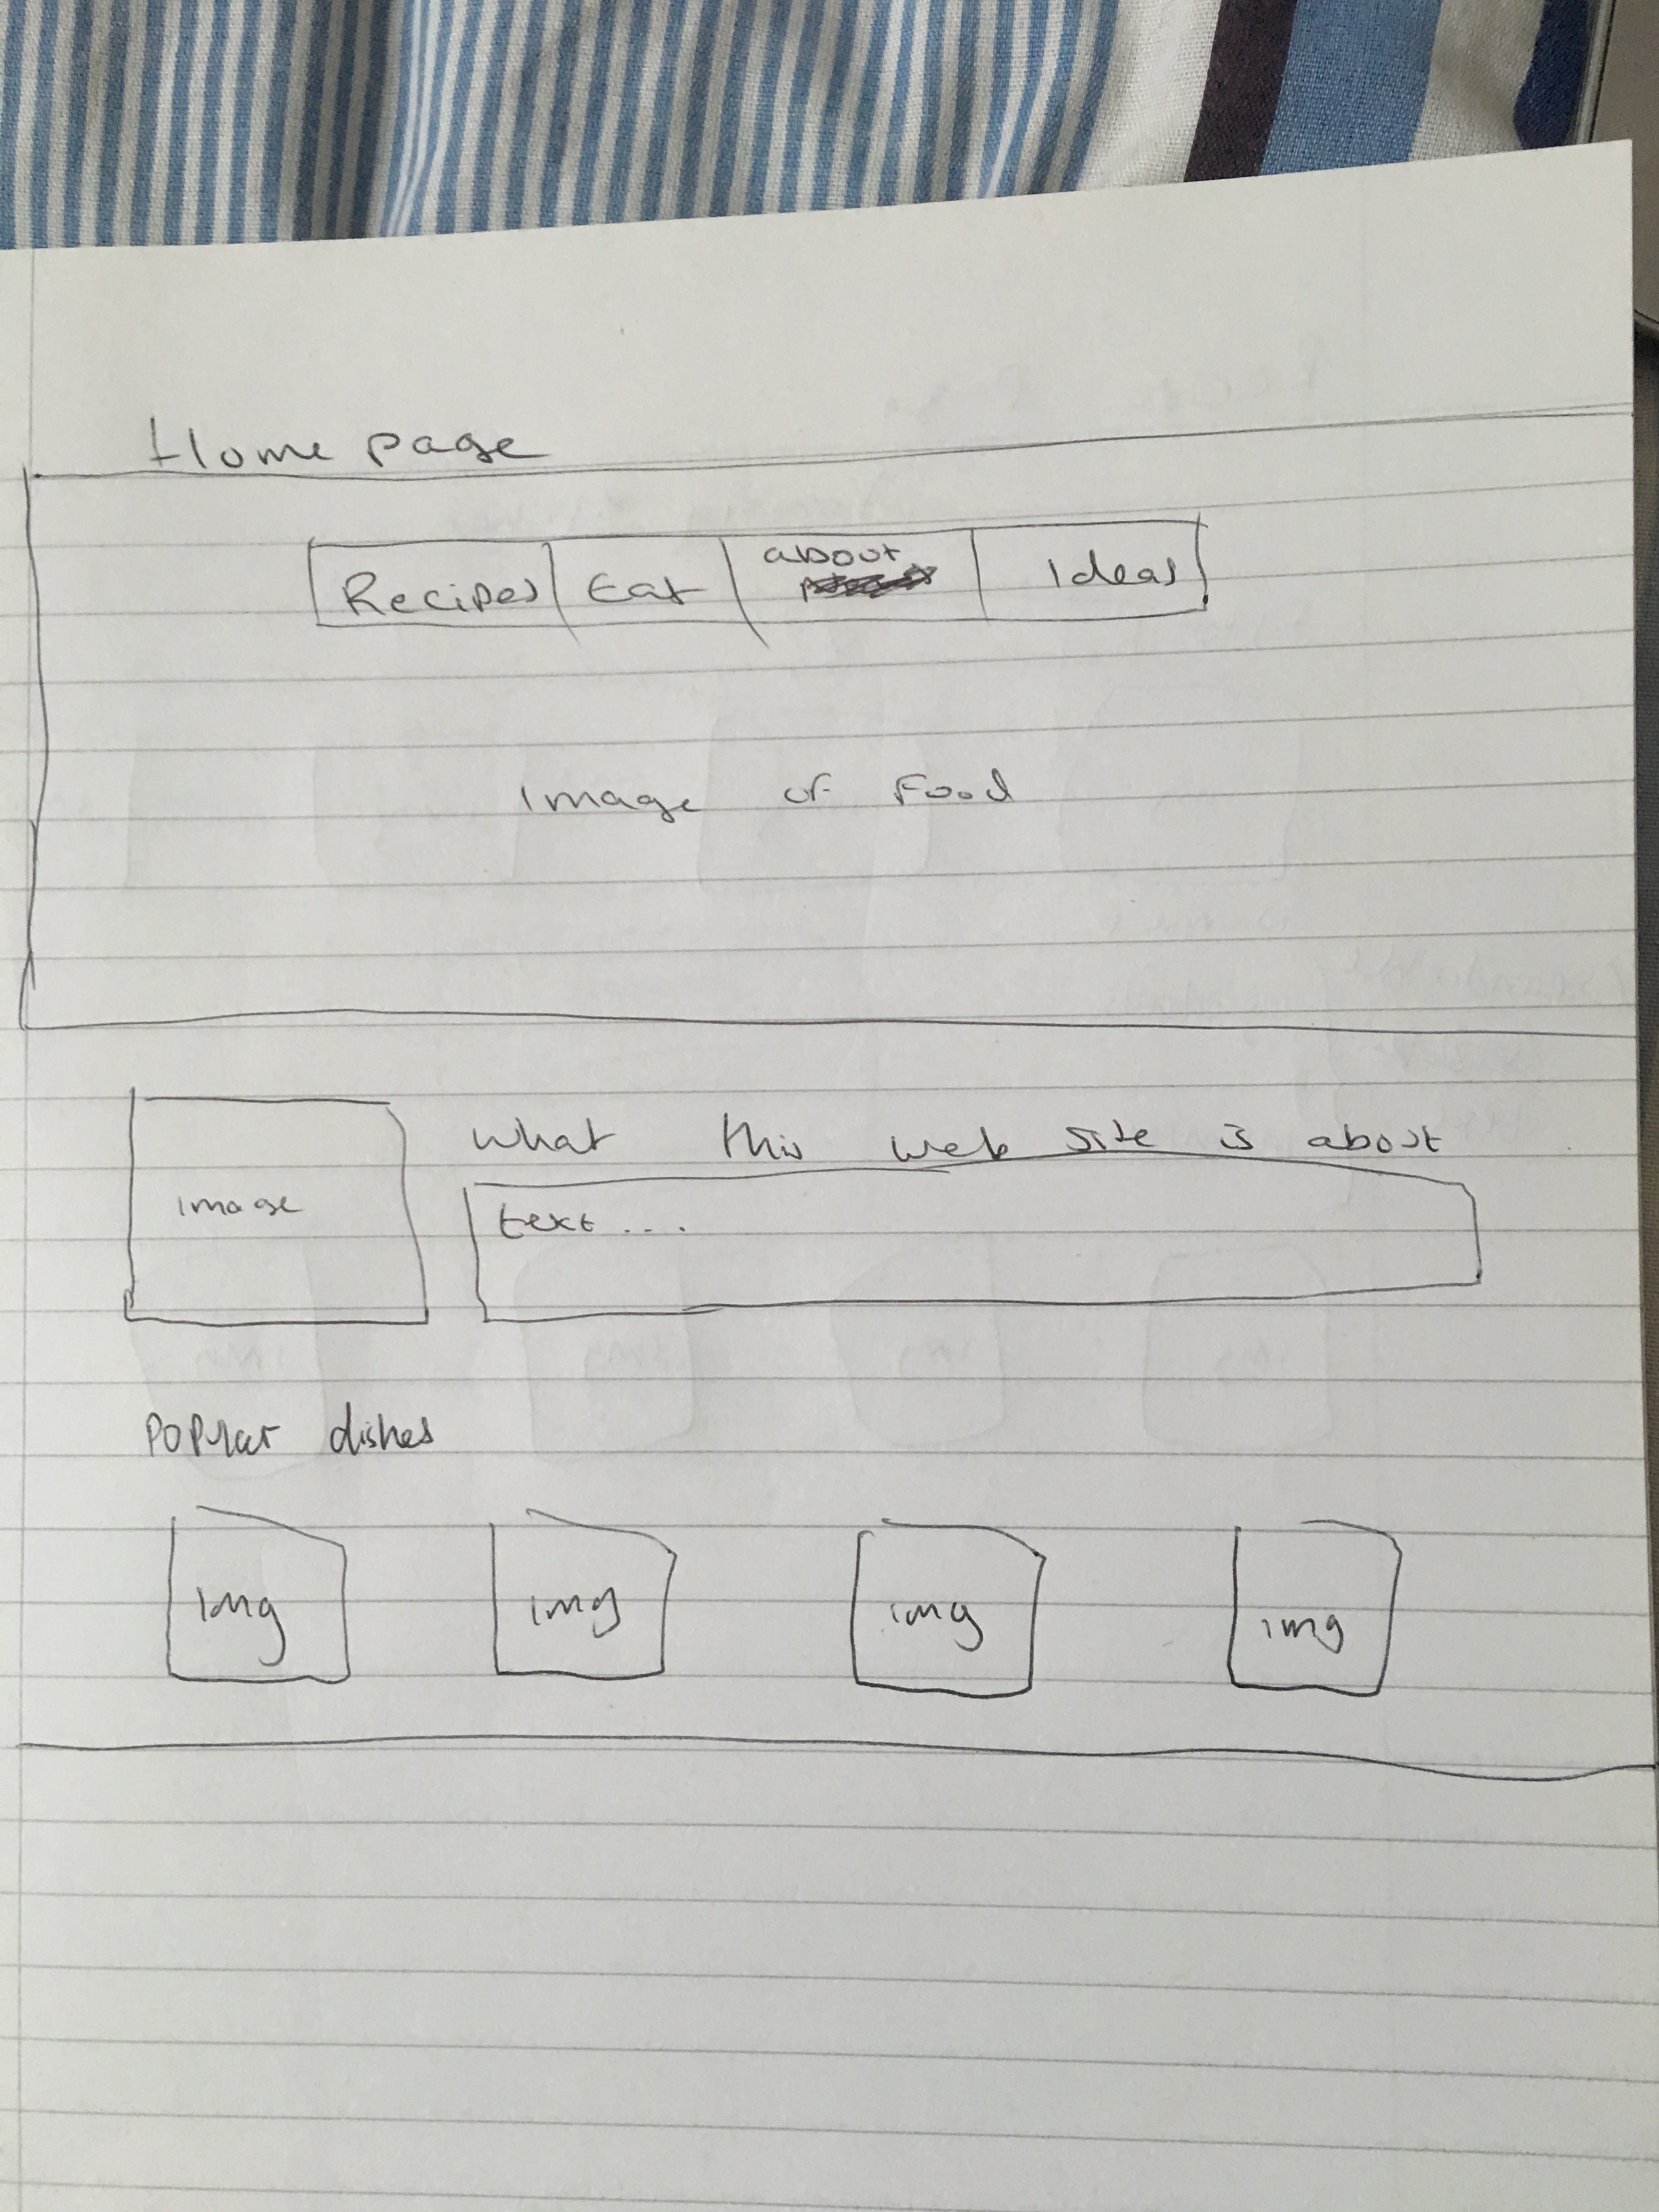 Home page
Recipes Eat about Ideas
image of Food
what this web site is about
image
text ....
Popular dishes
img img img img